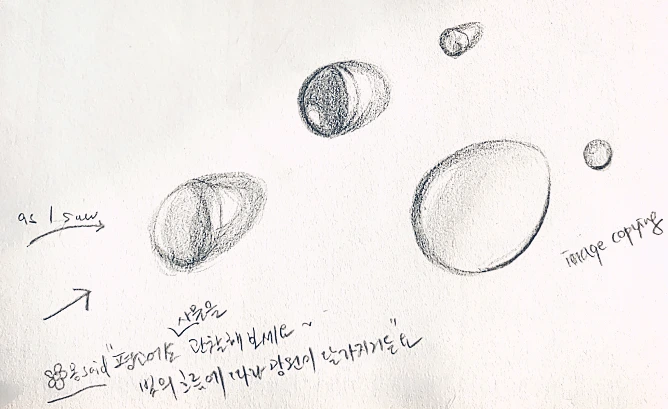 as I saw
image copying
사물을
said "평소에도 관찰해보세요~
빛의 흐름에 따라 광원이 달라지거든"요